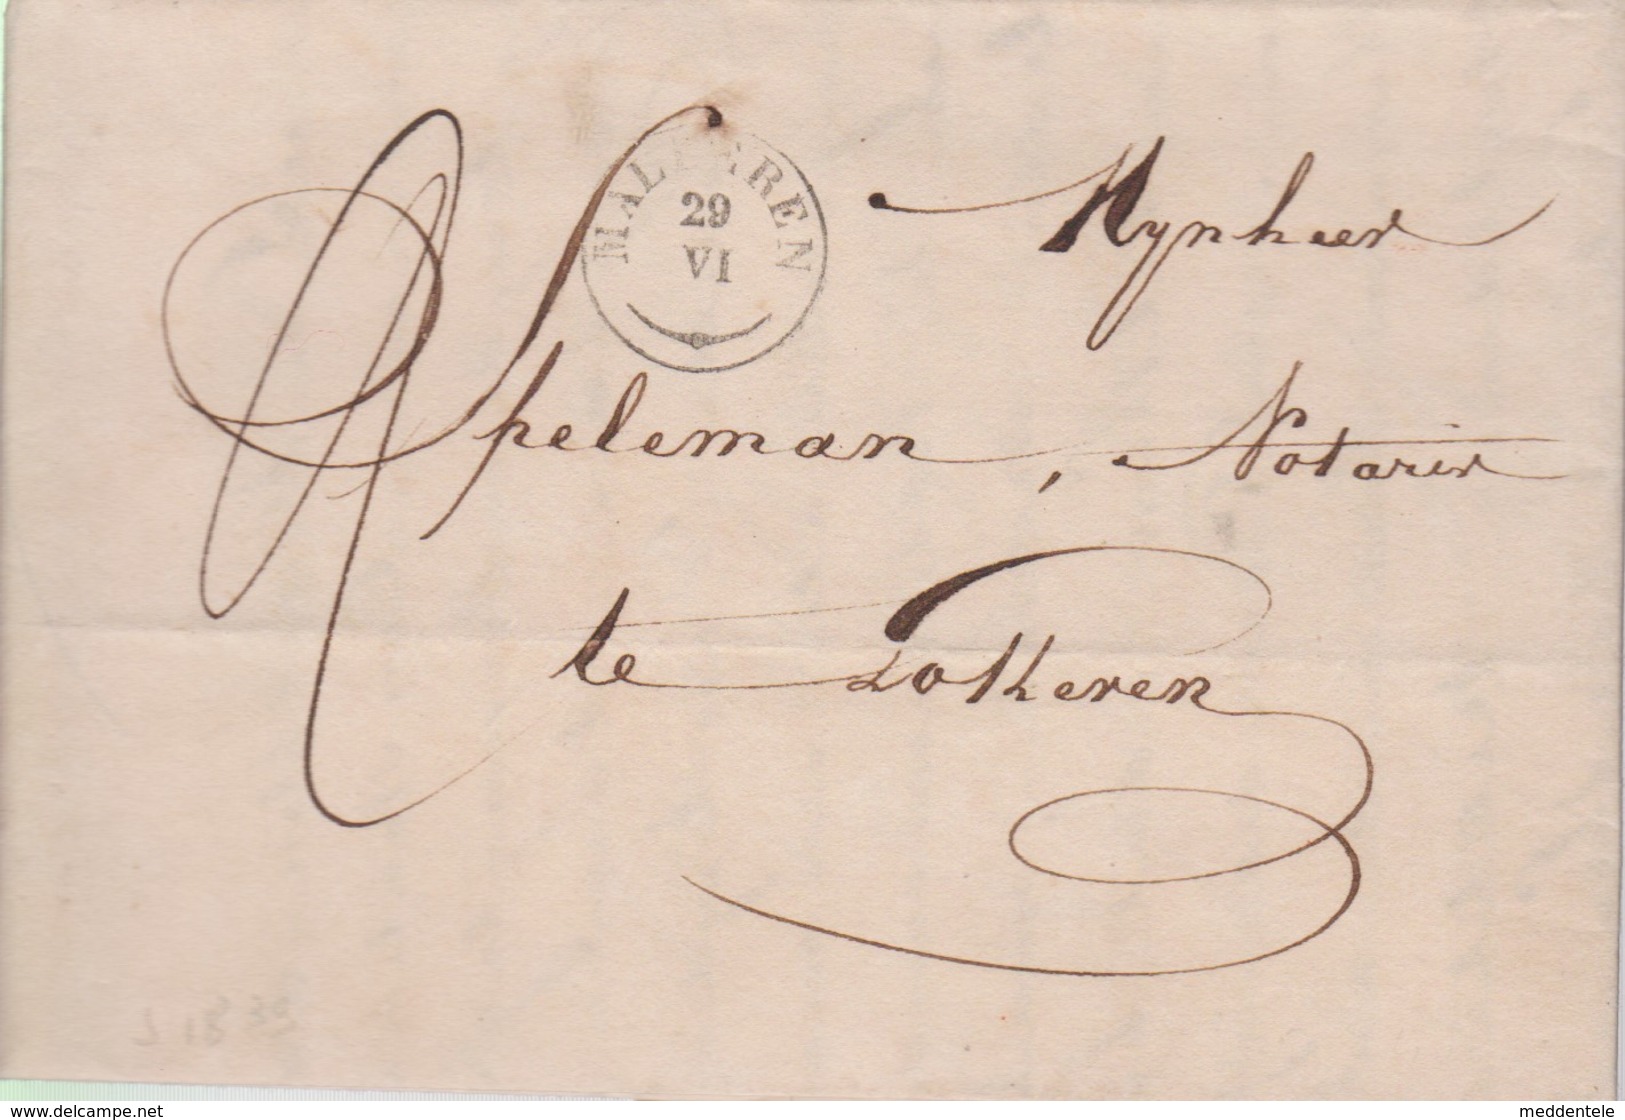 MALDEREN
29
VI
Mynheer
Speleman, Notaris
te Lokeren
www.delcampe.net
meddentele